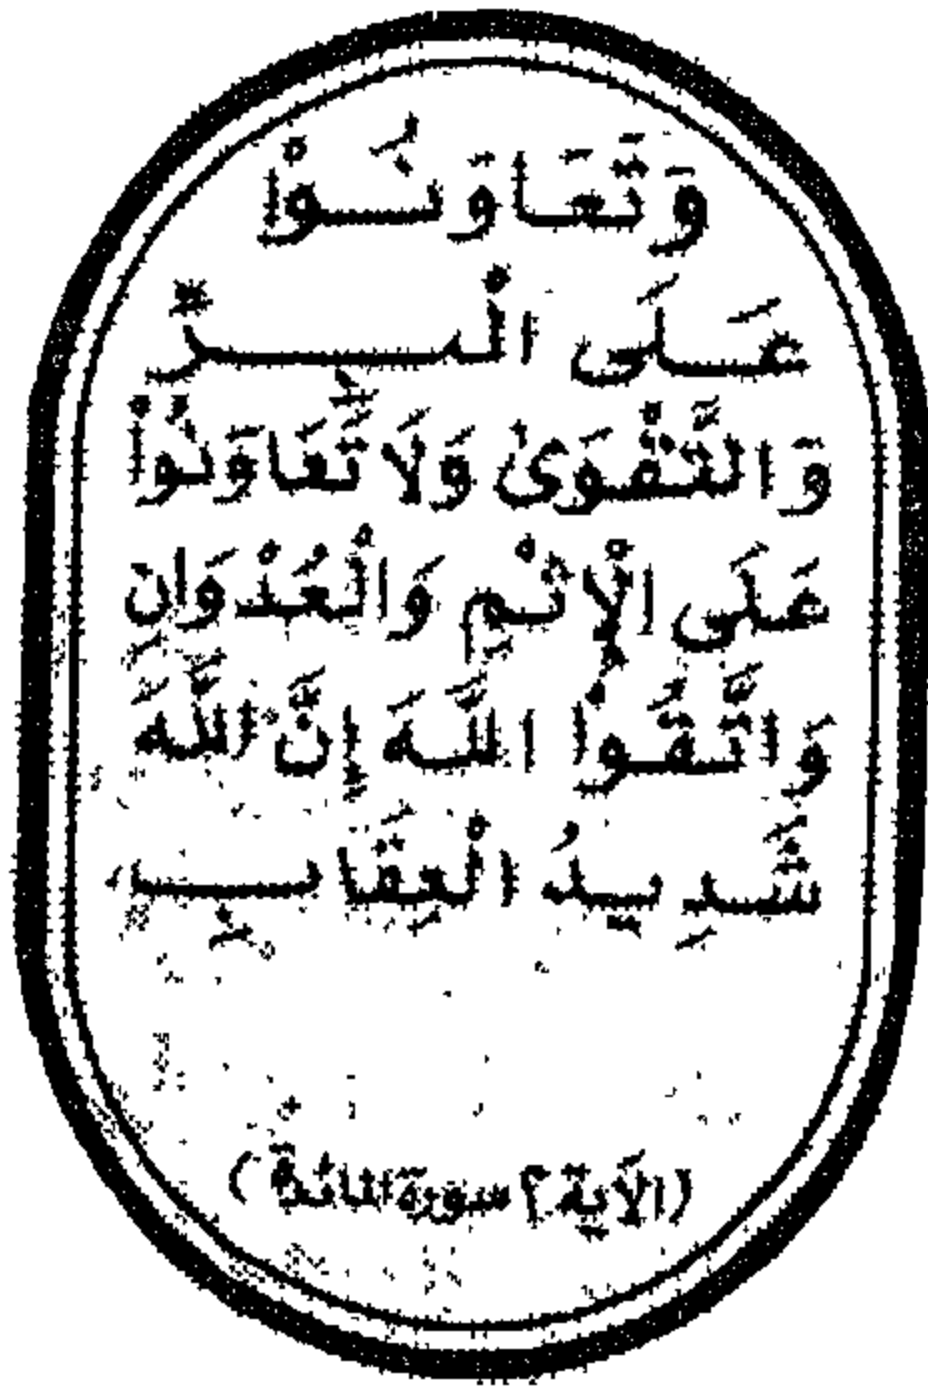 وَتَعَاوَنُوْا
عَلَى الْبِرِّ
وَالتَّقْوَىٰ وَلَا تَعَاوَنُوْا
عَلَى الْإِثْمِ وَالْعُدْوَانِ
وَاتَّقُوْا اللَّهَ إِنَّ اللَّهَ
شَدِيدُ الْعِقَابِ
(الآية ٢ سورة المائدة)